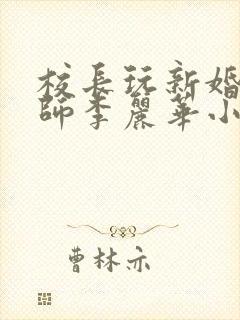 校長玩新婚
師李麗華小
曹林亦